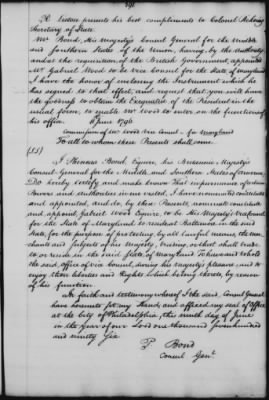 R. Liston presents his best compliments to Colonel Pickering
Secretary of State.
Mr Bond, His Majesty's Consul General for the Middle
and Southern States of the Union, having, by the authority
and at the requisition of the British Government, appointed
Mr Gabriel Wood to be vice Consul for the State of Maryland
I have the honor of enclosing the Instrument which he
has signed to that effect, and request that you will have
the goodness to obtain the Exequatur of the President in the
usual form, to enable Mr Wood to enter on the functions of
his office. 11 June 1796
Commission of Mr Wood Vice Consul for Maryland
To all to whom these Presents shall come
(LS)
I Phineas Bond Esquire, his Britannic Majesty's
Consul General for the Middle and Southern States of America
Do hereby certify and make known that in pursuance of certain
Powers and authorities in me vested, I have nominated constituted
and appointed, and do, by these Presents, nominate constitute
and appoint Gabriel Wood Esquire, to be His Majesty's vice Consul
for the State of Maryland to reside at Baltimore in the said
State, for the purpose of protecting, by all lawful means, the mer-
chants and Subjects of his Majesty, trading, or that shall trade
to or reside in the said State of Maryland To have and to hold
the said office of vice Consul, during his Majesty's pleasure and to
enjoy those Liberties and Rights which belong thereto, by reason
of his function.
In faith and testimony whereof I the said Consul General
have hereunto set my Hand, and affixed my seal of Office
at the City of Philadelphia, this ninth day of June
in the year of our Lord one thousand seven hundred
and ninety Six
P. Bond
Consul Genl.